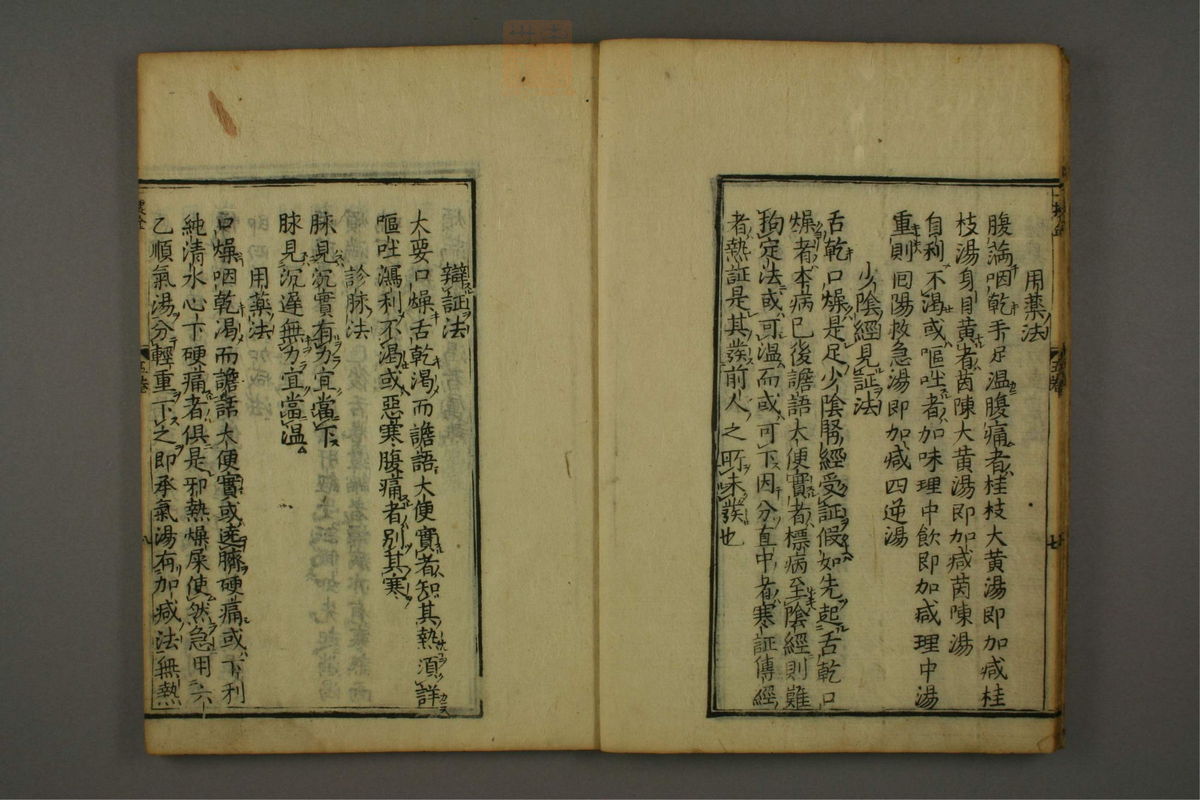 用藥法
腹滿咽乾手足溫腹痛者桂枝大黃湯即加减桂
枝湯身目黃者茵陳大黃湯即加减茵陳湯
自利不渴或嘔吐者加味理中飲即加减理中湯
重則囘陽救急湯即加减四逆湯
少陰經見証法
舌乾口燥是足少陰腎經受証假如先起舌乾口
燥者本病已後譫語大便實者標病至陰經則難
拘定法或可溫而或可下因分直中者寒証傳經
者熱証是其發前人之所未發也
七
辯証法
大要口燥舌乾渴而譫語大便實者知其熱湏詳
嘔吐瀉利不渴或惡寒腹痛者別其寒
診脉法
脉見沉實有力宜當下
脉見沉遲無力宜當溫
用藥法
口燥咽乾渴而譫語大便實或遶臍硬痛或下利
純清水心下硬痛者俱是邪熱燥屎使然急用六
乙順氣湯分輕重下之即承氣湯有加减法無熱